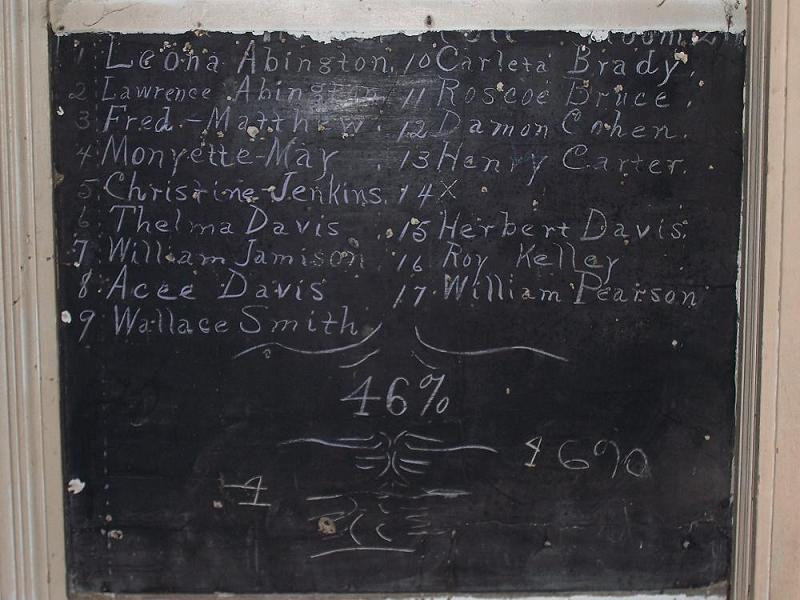 1 Leona Abington. 10 Carleta Brady.
2 Lawrence Abington 11 Roscoe Bruce.
3 Fred-Matthew. 12 Damon Cohen.
4 Monyette-May. 13 Henry Carter.
5 Christine-Jenkins. 14 X
6 Thelma Davis 15 Herbert Davis.
7 William Jamison 16 Roy Kelley
8 Acee Davis 17 William Pearson
9 Wallace Smith
46%
46%
4